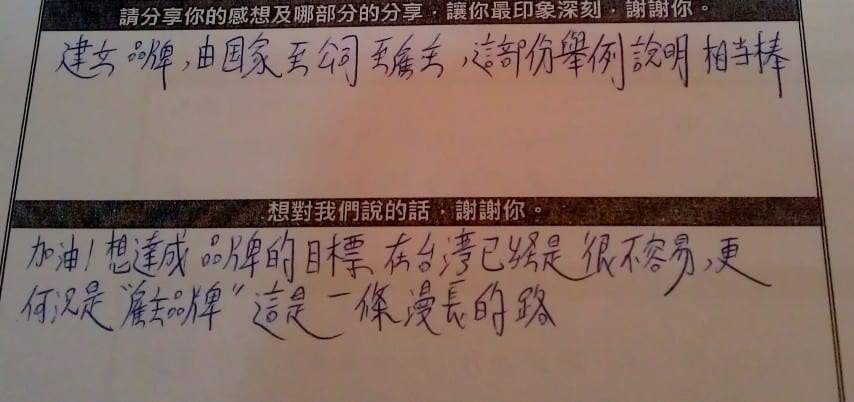 請分享你的感想及哪部分的分享，讓你最印象深刻，謝謝你。
建立品牌，由国家至公司至雇主，這部份舉例說明相当棒
想對我們說的話，謝謝你。
加油！想達成品牌的目標在台湾已経是很不容易，更
何況是"雇主品牌"這是一條漫長的路